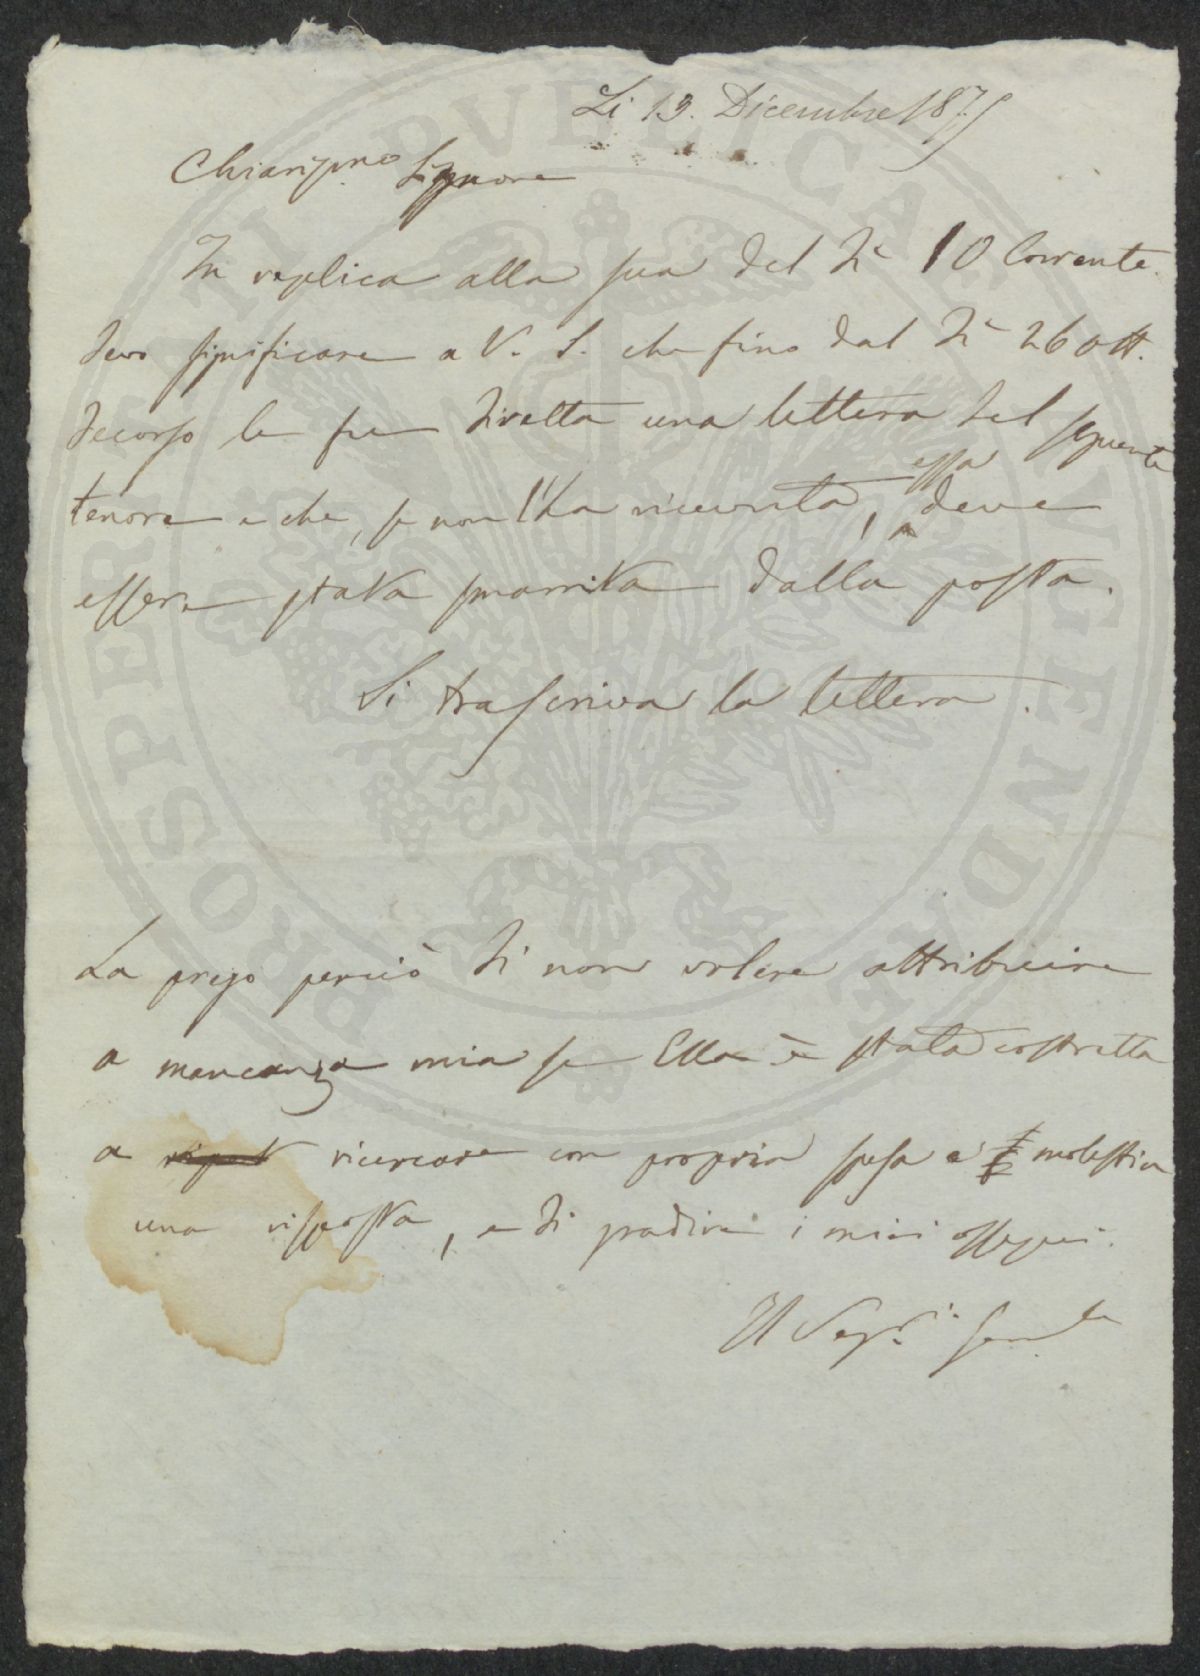 Li 13. Dicembre 1875
Chiariss.mo Signore
In replica alla sua del dì 10 Corrente
devo significare a V. S. che fino dal dì 26 ott.
decorso le fu diretta una lettera del seguente
tenore e che, se non l'ha ricevuta, essa deve
essere stata smarrita dalla posta.
Si trascriva la lettera.
La prego perciò di non volere attribuire
a mancanza mia se Ella è stata costretta
a ricercare con propria spesa e molestia
una risposta, e di gradire i miei ossequi.
Il Seg.rio Gen.le
PROSPERITATI PVBLICAE AVGENDAE